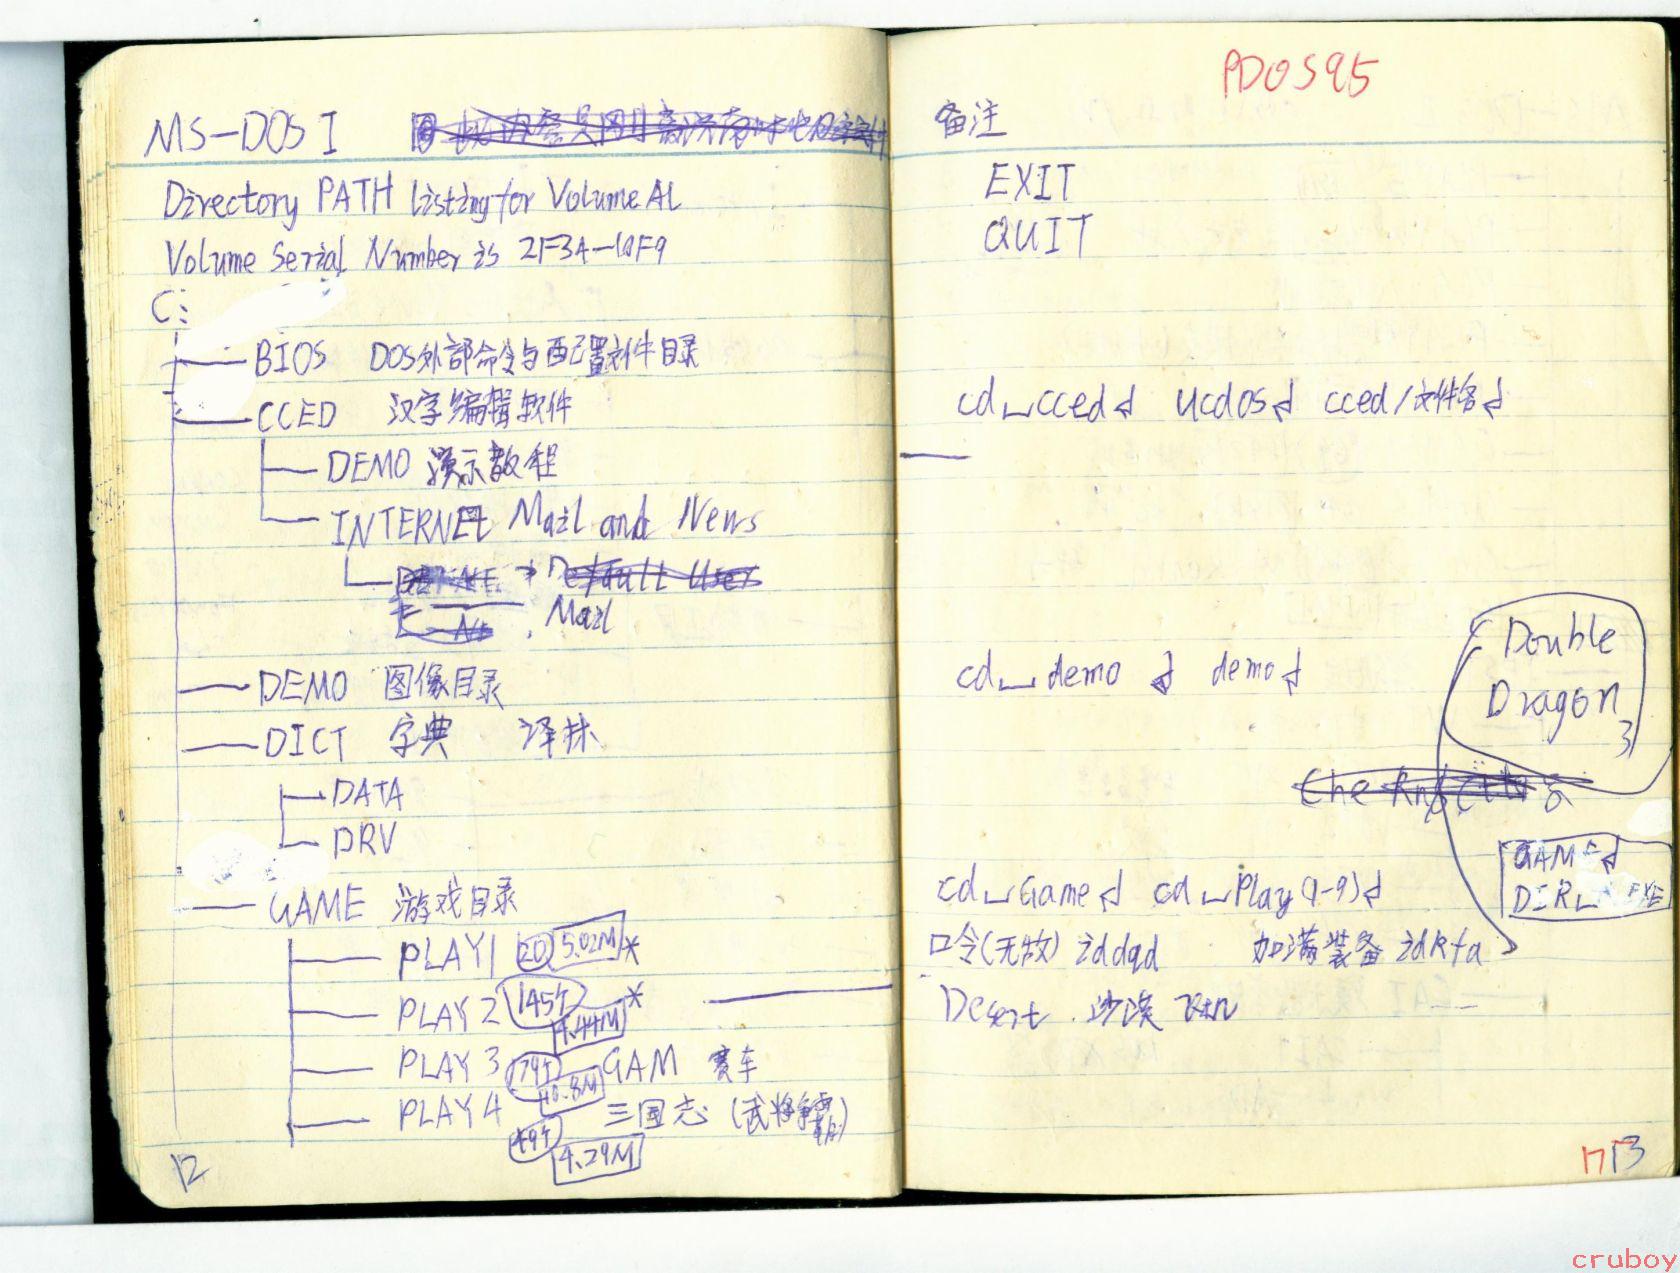 MS-DOS I
Directory PATH Listing for Volume AL
Volume Serial Number is 2F3A-10F9
C:
BIOS DOS外部命令与配置文件目录
CCED 汉字编辑软件
DEMO 演示教程
INTERNET Mail and News
Default User
Mail
DEMO 图像目录
DICT 字典 译林
DATA
DRV
GAME 游戏目录
PLAY1 20 5.02M *
PLAY2 145个 4.44M *
PLAY3 179个 40.8M GAM 赛车
PLAY4 49个 4.29M 三国志(武将争霸)
12
PDOS95
备注
EXIT
QUIT
cd␣cced↲ ucdos↲ cced/文件名↲
cd␣demo↲ demo↲
Double
Dragon
3
GAME↲
DIR␣ EXE
cd␣Game↲ cd␣Play(1-9)↲
口令(无敌) iddqd 加满装备 idkfa
Desert 沙漠 run
13
cruboy